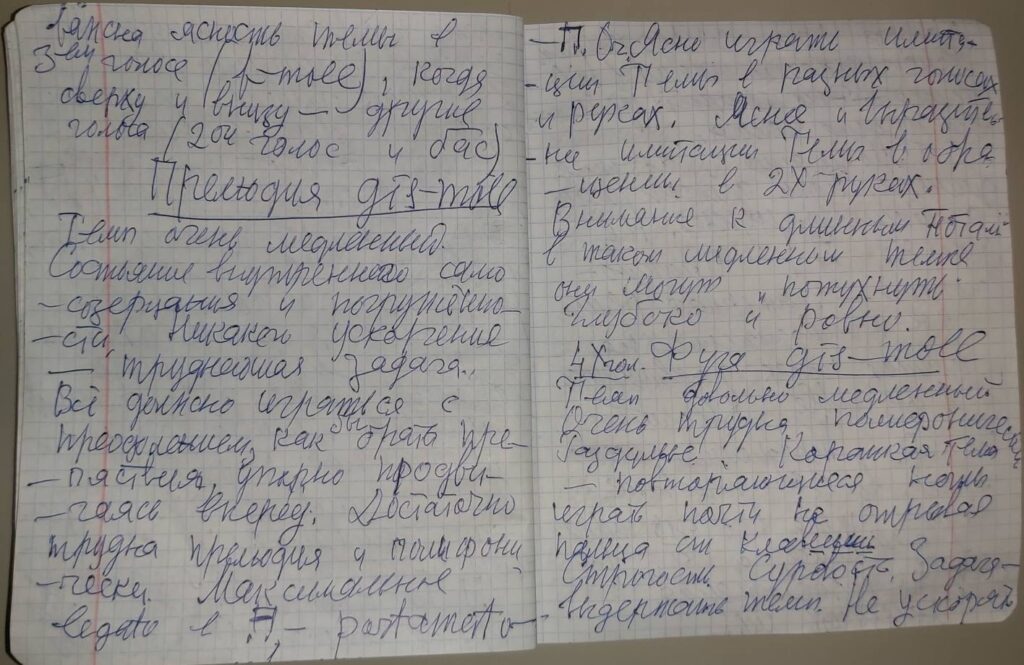 важна ясность темы в
3ем голосе (b-moll), когда
сверху и внизу — другие
голоса (2ой голос и бас)
Прелюдия dis-moll
Темп очень медленный.
Состояние внутреннего само
-созерцания и погружённо-
-сти. Никакого ускорения
— труднейшая задача.
Всё должно играться с
преодолением, как бы брать пре-
-пятствия, упорно продви-
-гаясь вперёд. Достаточно
трудна прелюдия и полифони
-чески. Максимальное
legato в П, — portamento
— П. Оч. Ясно играть имита-
-ции Темы в разных голосах
и руках. Ясно и выразитель-
-но имитации Темы в обра
-щении в 2х руках.
Внимание к длинным нотам
в таком медленном темпе
они могут потухнуть.
Глубоко и ровно.
4х гол. Фуга dis-moll
Темп довольно медленный
Очень трудна полифонически
Короткая тема
— повторяющиеся ноты
играть почти не отрывая
пальца от клавиши
Строгость. Суровость. Задача-
-выдержать темп. Не ускорять